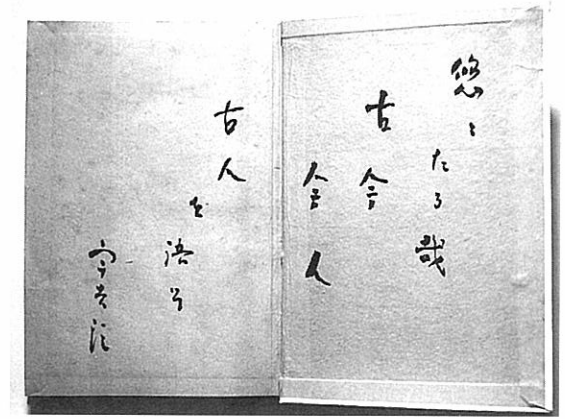 悠々たる哉
古今
今人
古人
を
語る